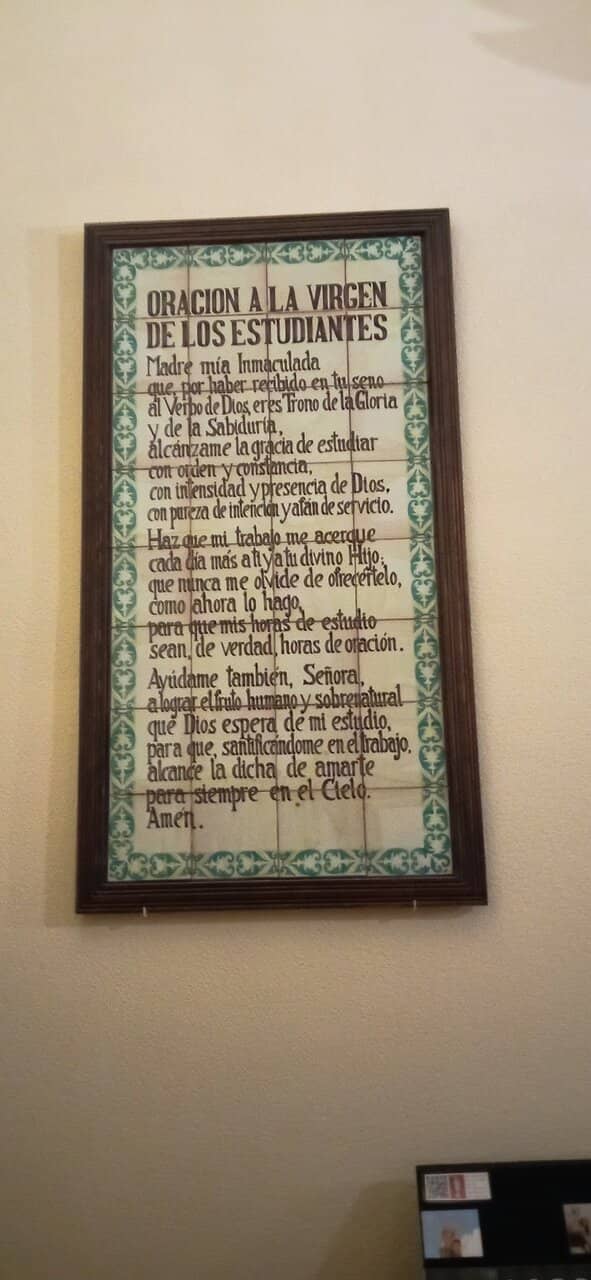 ORACION A LA VIRGEN
DE LOS ESTUDIANTES
Madre mía Inmaculada
que, por haber recibido en tu seno
al Verbo de Dios, eres Trono de la Gloria
y de la Sabiduría,
alcánzame la gracia de estudiar
con orden y constancia,
con intensidad y presencia de Dios,
con pureza de intención y afán de servicio.
Haz que mi trabajo me acerque
cada día más a ti y a tu divino Hijo;
que nunca me olvide de ofrecértelo,
como ahora lo hago,
para que mis horas de estudio
sean, de verdad, horas de oración.
Ayúdame también, Señora,
a lograr el fruto humano y sobrenatural
que Dios espera de mi estudio,
para que, santificándome en el trabajo,
alcance la dicha de amarte
para siempre en el Cielo.
Amén.